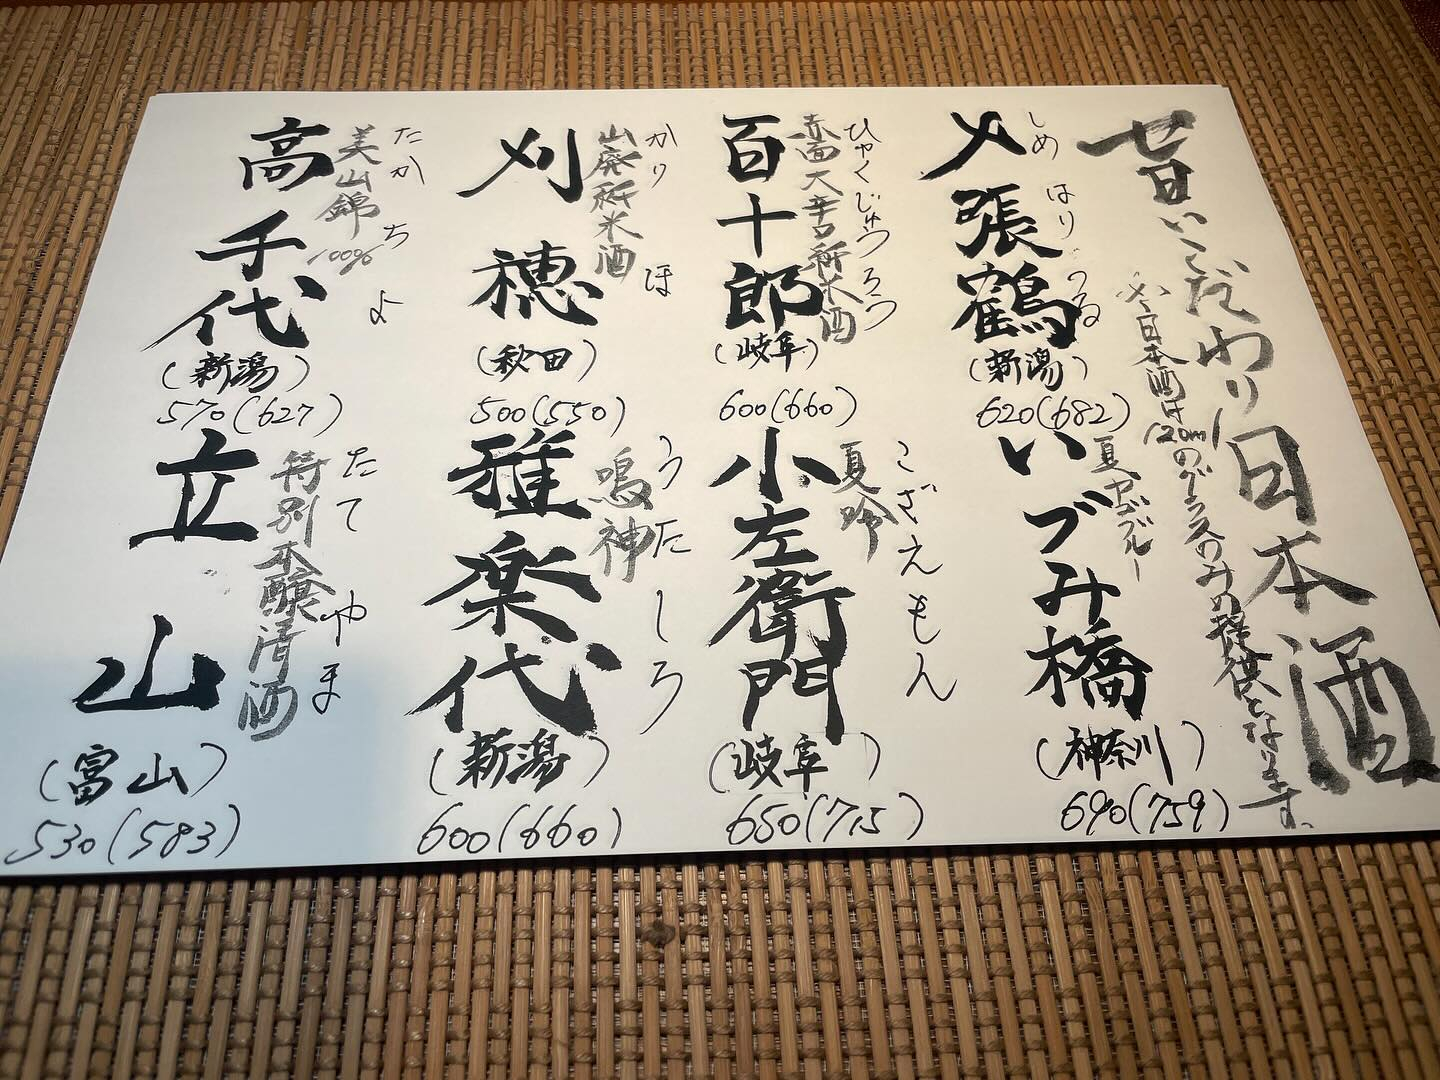 昔いこだわり日本酒
※日本酒は120mlのグラスのみの提供となります。
〆張鶴
しめはりつる
(新潟)
620(682)
百十郎
ひゃくじゅうろう
赤面大辛口純米酒
(岐阜)
600(660)
刈穂
かりほ
山廃純米酒
(秋田)
500(550)
高千代
たかちよ
美山錦
100%
(新潟)
570(627)
いづみ橋
夏ヤゴブルー
(神奈川)
690(759)
小左衛門
こざえもん
夏吟
(岐阜)
650(715)
雅楽代
うたしろ
鳴神
(新潟)
600(660)
立山
たてやま
特別本醸清酒
(富山)
530(583)